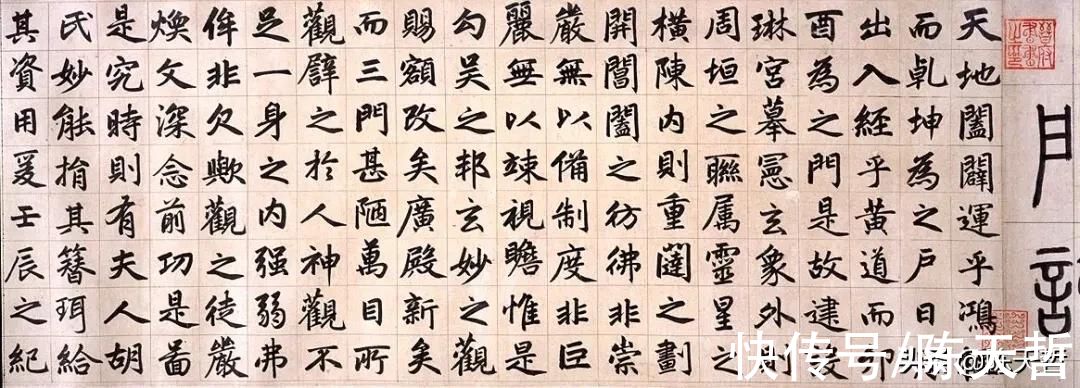 門記
天地闔闢運乎鴻
而乹坤為之戶日
出入經乎黃道而卯
酉為之門是故建設
琳宮摹憲玄象外
周垣之聯属靈星之
橫陳內則重闥之劃
開閶闔之彷彿非崇
嚴無以備制度非巨
麗無以竦視瞻惟是
勾吴之邦玄妙之觀
賜額改矣廣殿新矣
而三門甚陋萬目所
觀辟之於人神觀不
足一身之内强弱弗
侔非欠歟觀之徒嚴
煥文深念前功是啚
是究時則有夫人胡
氏妙能捐其簪珥給
其資用爰壬辰之紀
快传号/陈天哲